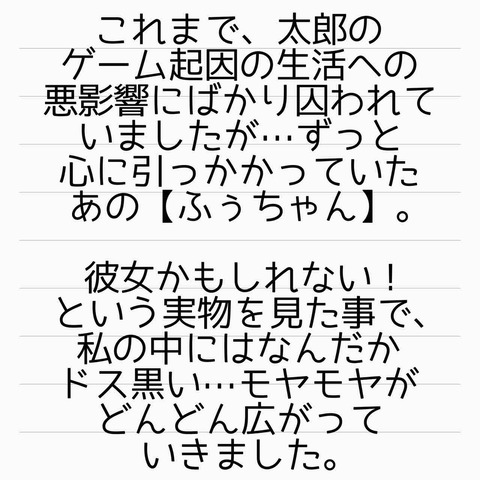 これまで、太郎の
ゲーム起因の生活への
悪影響にばかり囚われて
いましたが…ずっと
心に引っかかっていた
あの【ふぅちゃん】。
彼女かもしれない！
という実物を見た事で、
私の中にはなんだか
ドス黒い…モヤモヤが
どんどん広がって
いきました。